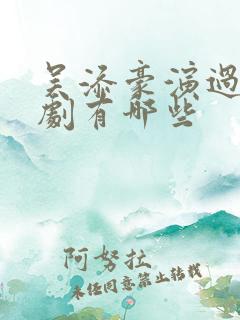 吴添豪演過
劇有哪些
阿努拉
未经同意禁止转载